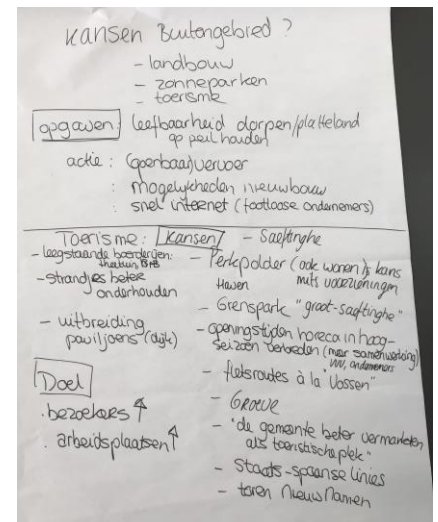 Kansen Buitengebied ?
- landbouw
- zonneparken
- toerisme
opgaven: leefbaarheid dorpen/platteland
op peil houden
actie : (openbaar) vervoer
: mogelijkheden nieuwbouw
: snel internet (footloose ondernemers)
Toerisme: Kansen
- leegstaande boerderijen:
theetuin, B&B
- strandjes beter
onderhouden
- uitbreiding
paviljoens (dijk)
Doel
. bezoekers ↑
. arbeidsplaatsen ↑
- Saeftinghe
- Perkpolder (ook wonen) is kans
Haven mits voorzieningen
- Grenspark "groot-saeftinghe"
- openingstijden horeca in hoog-
seizoen verbreden (meer samenwerking)
VVV, ondernemers
- fietsroutes à la Vossen"
- GROEVE
- "de gemeente beter vermarkten
als toeristische plek"
- Staats-spaanse linies
- toren Nieuw Namen